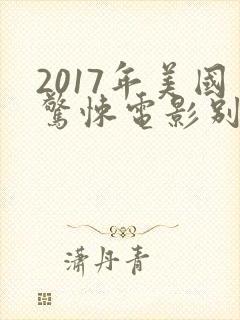 2017年美國
驚悚電影别
潇丹青